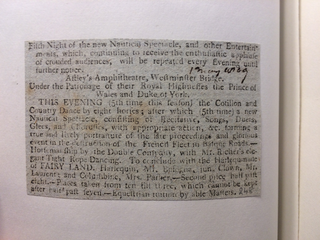 Fifth Night of the new Nautical Spectacle, and other Entertain-
ments, which, continuing to receive the enthusiastic applause
of crouded audiences, will be repeated every Evening until
further notice.
Astley's Amphitheatre, Westminster Bridge.
Under the Patronage of their Royal Highnesses the Prince of
Wales and Duke of York.
THIS EVENING (5th time this season) the Cotillon and
Country Dance by eight horses; after which (5th time) a new
Nautical Spectacle, consisting of Recitative, Songs, Duets,
Glees, and Chorusses, with appropriate action, &c. forming a
true and lively portraiture of the late proceedings and glorious
event in the destruction of the French Fleet in Basque Roads.—
Horsemanship by the Double Company, with Mr. Richer's ele-
gant Tight Rope Dancing. To conclude with the harlequinade
of FAIRY LAND. Harlequin, Mr. Bologna, jun. Clown, Mr.
Laurent; and Columbine, Mrs. Parker.—Second price half past
eight.—Places taken from ten till three, which cannot be kept
after half past seven.—Equestrian tuition by able Masters.